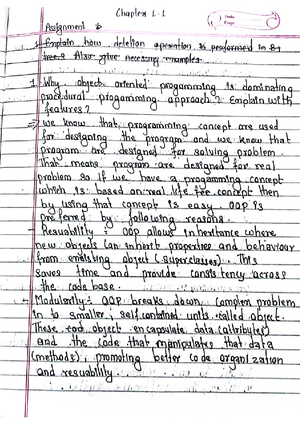 Chapter 1.1
Date
Page
Assignment
1. Explain how deletion operation is performed in B+
tree? Also give necessary examples
1. Why object oriented progamming is dominating
procedural progamming approach? Explain with
features?
=> we know that programming concept are used
for designing the program and we know that
program are designed for solving problem
that means program are designed for real
problem so if we have a progamming concept
which is based on real life fee concept then
by using that concept is easy. OOP is
preferred by following reasons.
- Resuability :- OOP allows inheritance where
new objects can inherit properties and behaviour
from existing object (superclasses). This
saves time and provide consistency across
the code base.
- Modularity :- OOP breaks down complen problem
in to smaller, self contained units called object.
These object encapsulate data (attributes)
and the code that manipulates that data
(methods), promoting better code organization
and resuability.